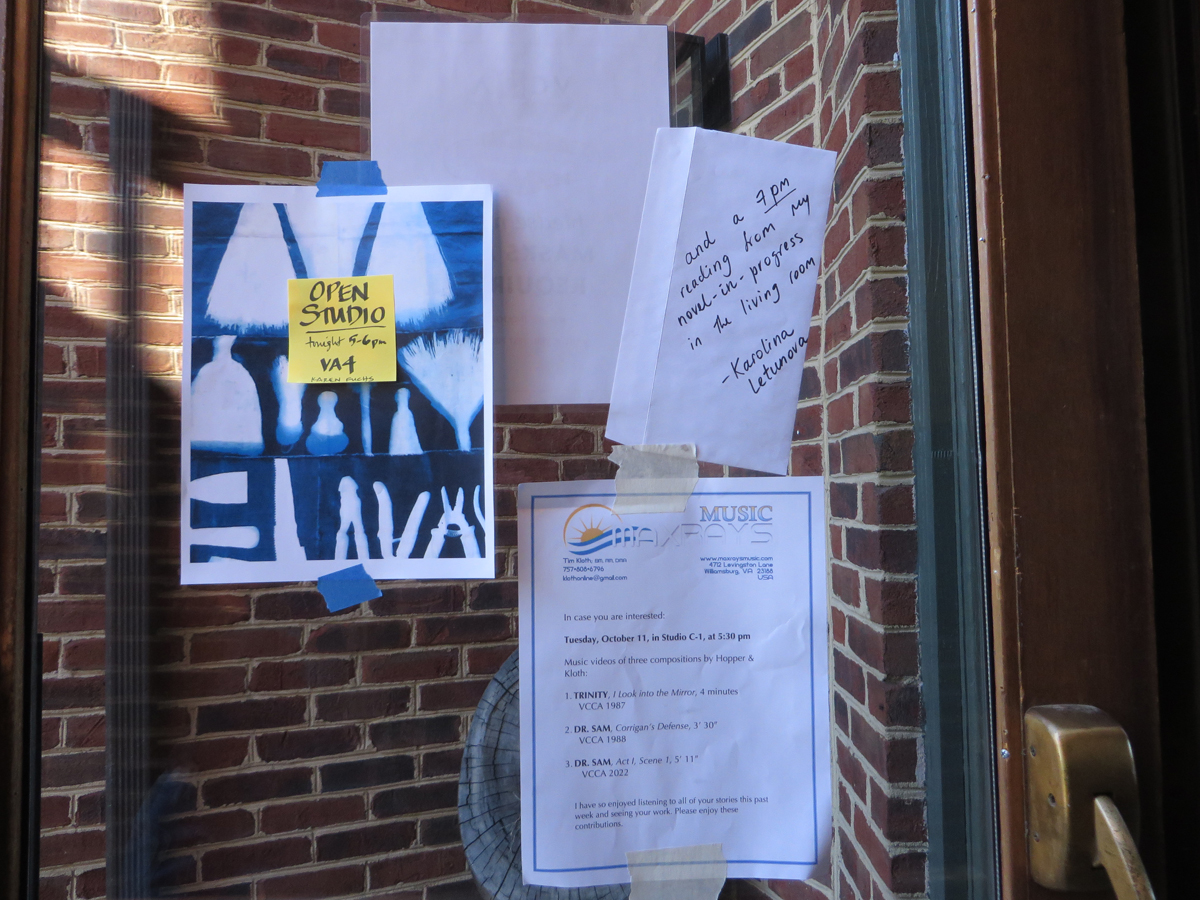 OPEN
STUDIO
tonight 5-6pm
VA4
KAREN FUCHS
and a 7pm
reading from my
novel-in-progress
in the living room
-Karolina
Letunova
MUSIC
MAXRAYS
Tim Kloth,
757•808•6796
klothonline@gmail.com
www.maxraysmusic.com
4712 Levingston Lane
Williamsburg, VA 23188
USA
In case you are interested:
Tuesday, October 11, in Studio C-1, at 5:30 pm
Music videos of three compositions by Hopper &
Kloth:
1. TRINITY, I Look into the Mirror, 4 minutes
VCCA 1987
2. DR. SAM, Corrigan's Defense, 3' 30"
VCCA 1988
3. DR. SAM, Act I, Scene 1, 5' 11"
VCCA 2022
I have so enjoyed listening to all of your stories this past
week and seeing your work. Please enjoy these
contributions.